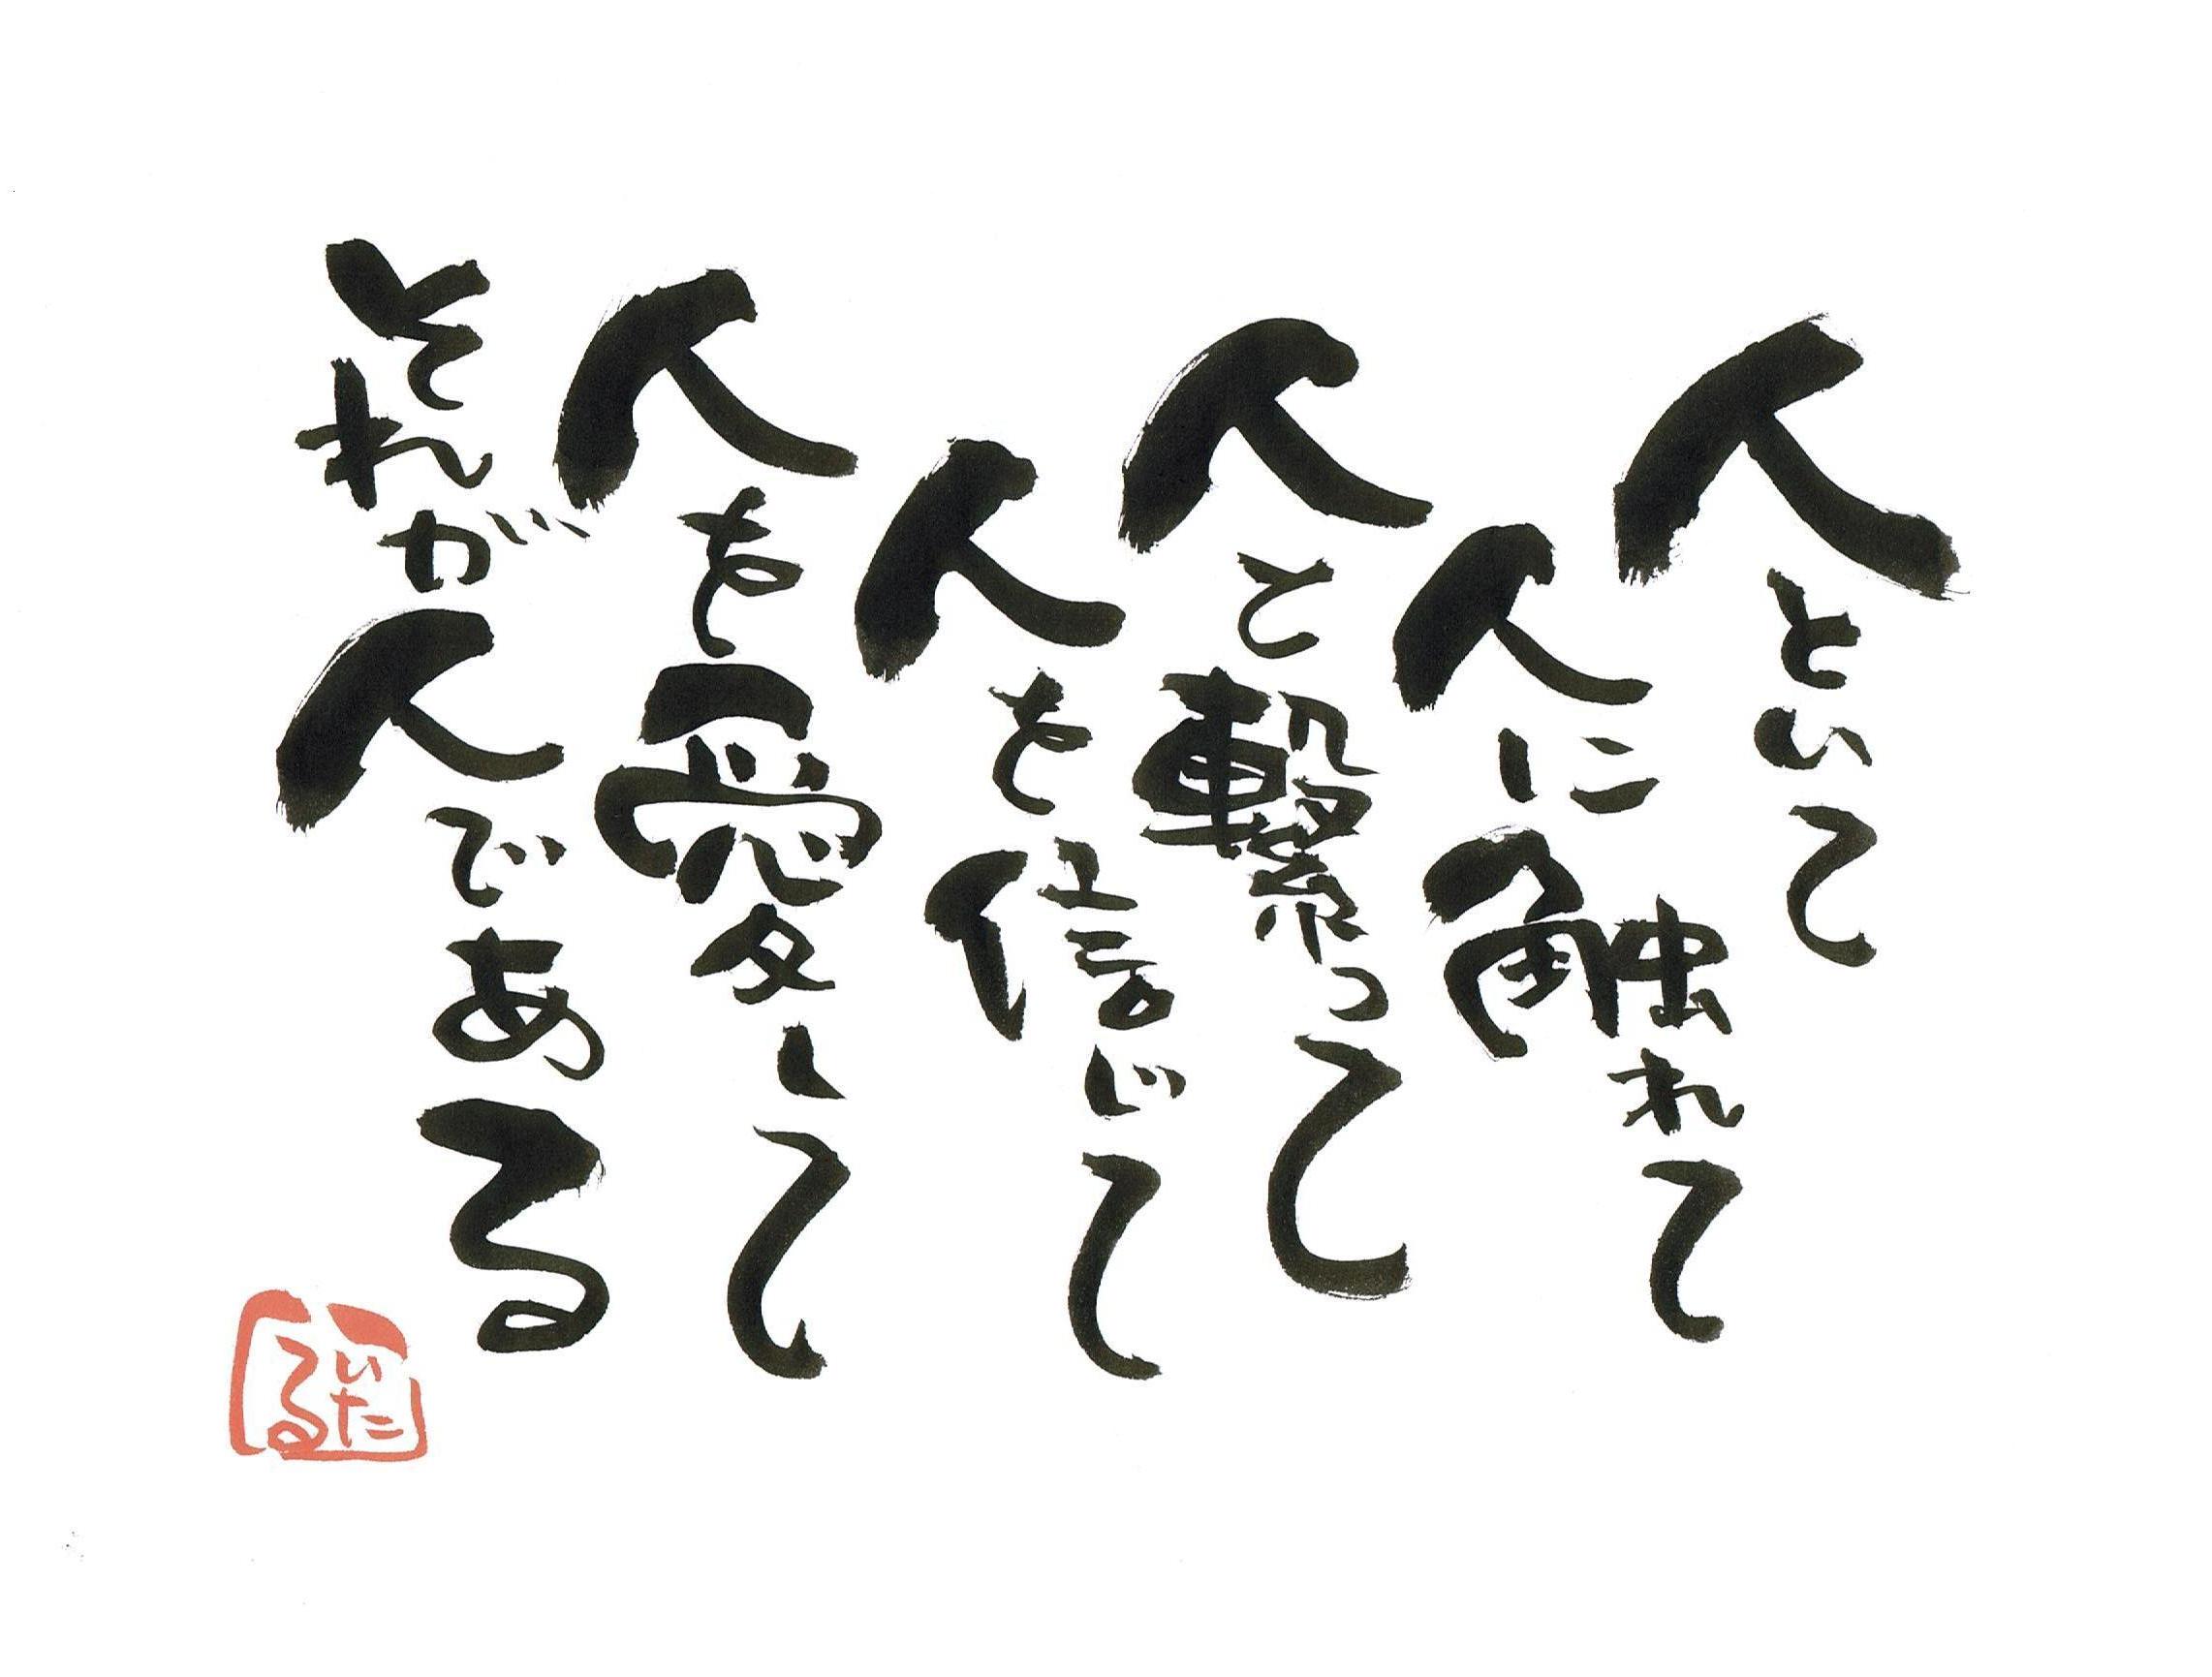 人といて
人に触れて
人と繋って
人を信じて
人を愛して
それが人である
いたる